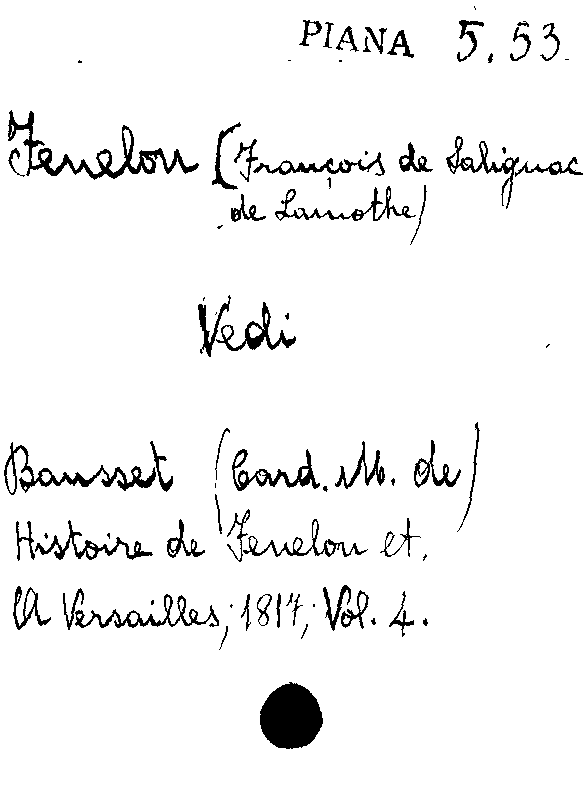 PIANA 5.53
Fenelon (François de Salignac
de Lamothe)
Vedi
Bausset (Card. M. de)
Histoire de Fenelon et.
A Versailles, 1817, Vol. 4.